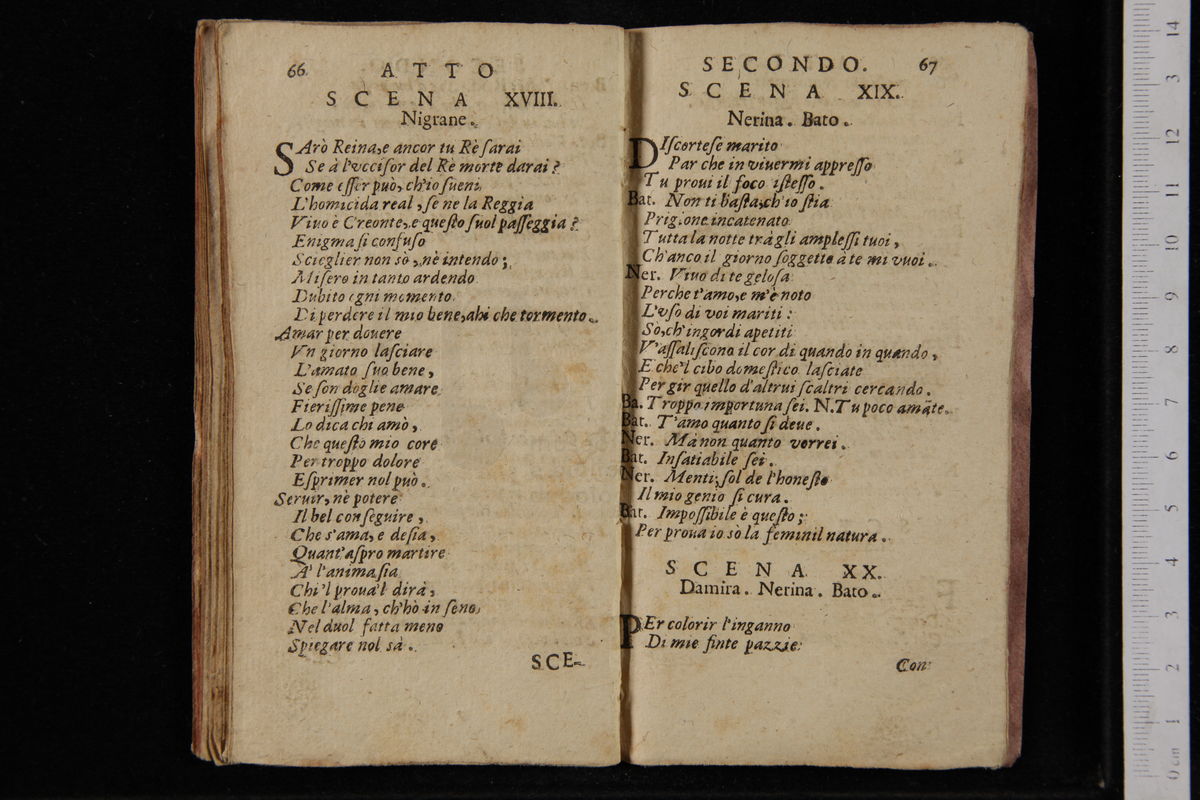 66. ATTO
SCENA XVIII.
Nigrane.
SArò Reina, e ancor tu Rè ſarai
Se à l'vcciſor del Rè morte darai?
Come eſſer può, ch'io ſueni
L'homicida real, ſe ne la Reggia
Viuo è Creonte, e queſto ſuol paſſeggia?
Enigma ſi confuſo
Scieglier non sò, nè intendo;
Miſero in tanto ardendo
Dubito ogni momento
Di perdere il mio bene, ahi che tormento.
Amar per douere
Vn giorno laſciare
L'amato ſuo bene,
Se ſon doglie amare
Fieriſſime pene
Lo dica chi amò,
Che queſto mio core
Per troppo dolore
Eſprimer nol può.
Seruir, nè potere
Il bel conſeguire,
Che s'ama, e deſia,
Quant'aſpro martire
A' l'anima ſia
Chi'l proua'l dirà,
Che l'alma, ch'hò in ſeno,
Nel duol fatta meno
Spiegare nol sà.
SCE-
SECONDO. 67
SCENA XIX.
Nerina. Bato.
DIſcorteſe marito
Par che in viuermi appreſſo
Tu proui il foco iſteſſo.
Bat. Non ti baſta, ch'io ſtia
Prigione incatenato
Tutta la notte trà gli ampleſſi tuoi,
Ch'anco il giorno ſoggetto à te mi vuoi.
Ner. Viuo di te geloſa
Perche t'amo, e m'è noto
L'vſo di voi mariti:
Sò, ch'ingordi apetiti
V'aſſaliſcono il cor di quando in quando,
E che'l cibo domeſtico laſciate
Per gir quello d'altrui ſcaltri cercando.
Ba. Troppo importuna ſei. N. Tu poco amāte.
Bat. T'amo quanto ſi deue.
Ner. Mà non quanto vorrei.
Bat. Inſatiabile ſei.
Ner. Menti, ſol de l'honeſto
Il mio genio ſi cura.
Bat. Impoſſibile è queſto;
Per proua io sò la feminil natura.
SCENA XX.
Damira. Nerina. Bato.
PEr colorir l'inganno
Di mie finte pazzie
Con